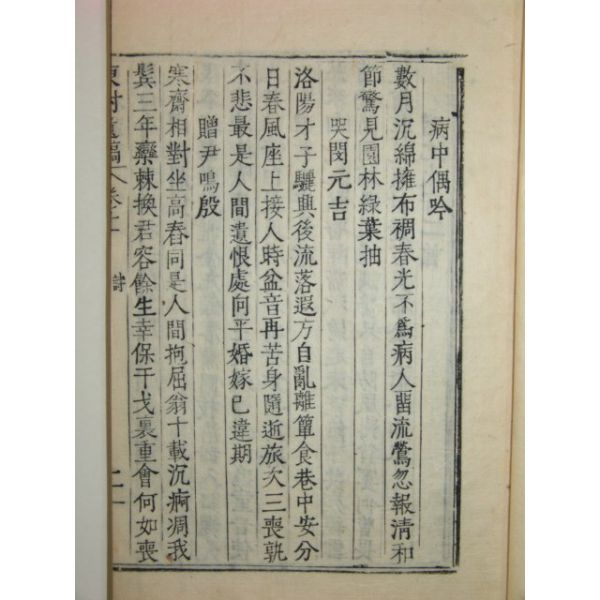 病中偶吟
數月沉綿擁布裯春光不爲病人留流鶯忽報清和
節驚見園林綠葉抽
哭閔元吉
洛陽才子驪興後流落遐方自亂離簞食巷中安分
日春風座上接人時盆音再苦身隨逝旅次三喪孰
不悲最是人間遺恨處向平婚嫁已違期
贈尹鳴殷
寒齋相對坐高舂同是人間抱屈翁十載沉痾凋我
鬂三年欒棘換君容餘生幸保干戈裏重會何如喪
遺稿 卷 詩